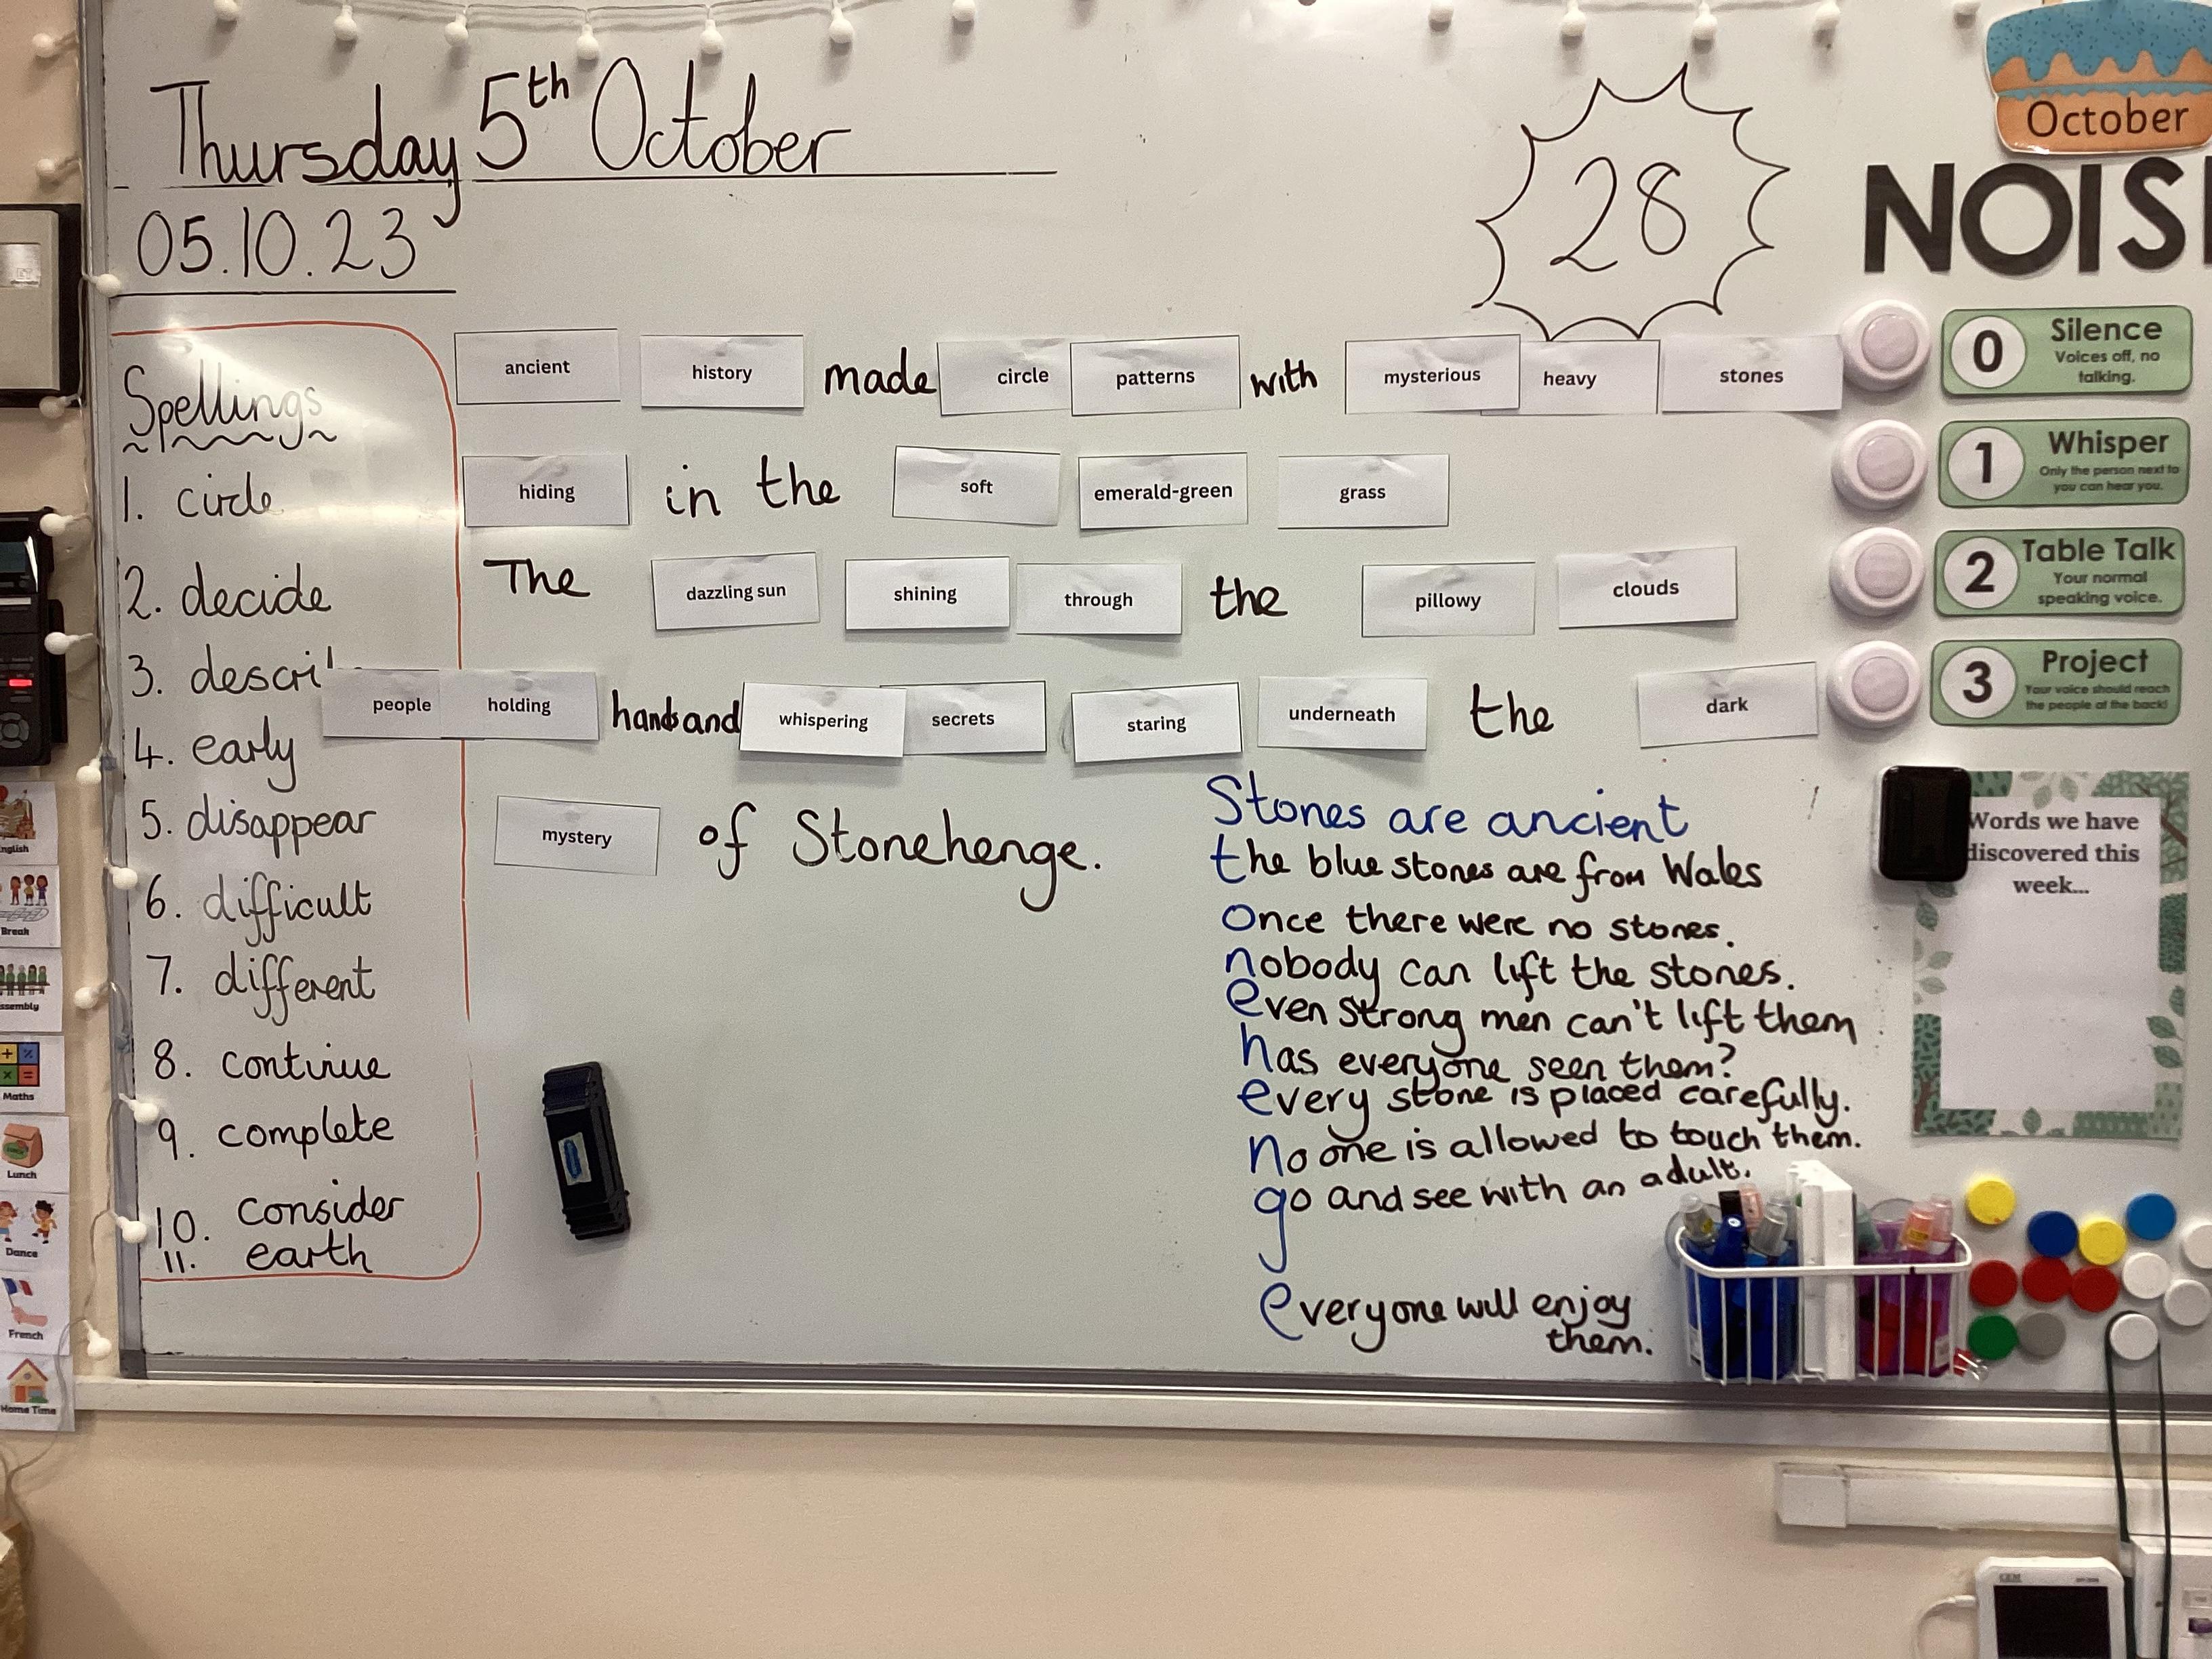 Thursday 5th October
05.10.23
28
October
NOIS
Spellings
1. circle
2. decide
3. descri
4. early
5. disappear
6. difficult
7. different
8. continue
9. complete
10. consider
11. earth
ancient history made circle patterns with mysterious heavy stones
hiding in the soft emerald-green grass
The dazzling sun shining through the pillowy clouds
people holding hands and whispering secrets staring underneath the dark
mystery of Stonehenge.
Stones are ancient
the blue stones are from Wales
Once there were no stones.
nobody can lift the stones.
even strong men can't lift them
has everyone seen them?
every stone is placed carefully.
No one is allowed to touch them.
go and see with an adult.
everyone will enjoy
them.
0 Silence
Voices off, no
talking.
1 Whisper
Only the person next to
you can hear you.
2 Table Talk
Your normal
speaking voice.
3 Project
Your voice should reach
the people at the back!
Words we have
discovered this
week...
nglish
Break
ssembly
Maths
Lunch
Dance
French
Home Time